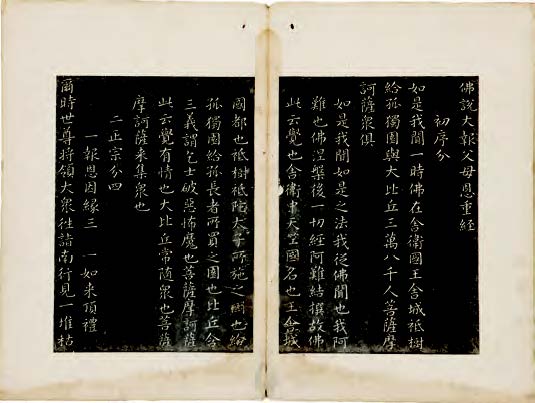 佛說大報父母恩重經
初序分
如是我聞一時佛在舍衛國王舍城祇樹
給孤獨園與大比丘三萬八千人菩薩摩
訶薩眾俱
如是我聞如是之法我從佛聞也我阿
難也佛涅槃後一切經阿難結撰故佛
此云覺也舍衛中天竺國名也王舍城
國都也祇樹祇陀太子所施之樹也給
孤獨園給孤長者所買之園也比丘含
三義謂乞士破惡怖魔也菩薩摩訶薩
此云覺有情也大比丘常隨眾也菩薩
摩訶薩來集眾也
二正宗分四
一報恩因緣三 一如來頂禮
爾時世尊將領大眾往詣南行見一堆枯